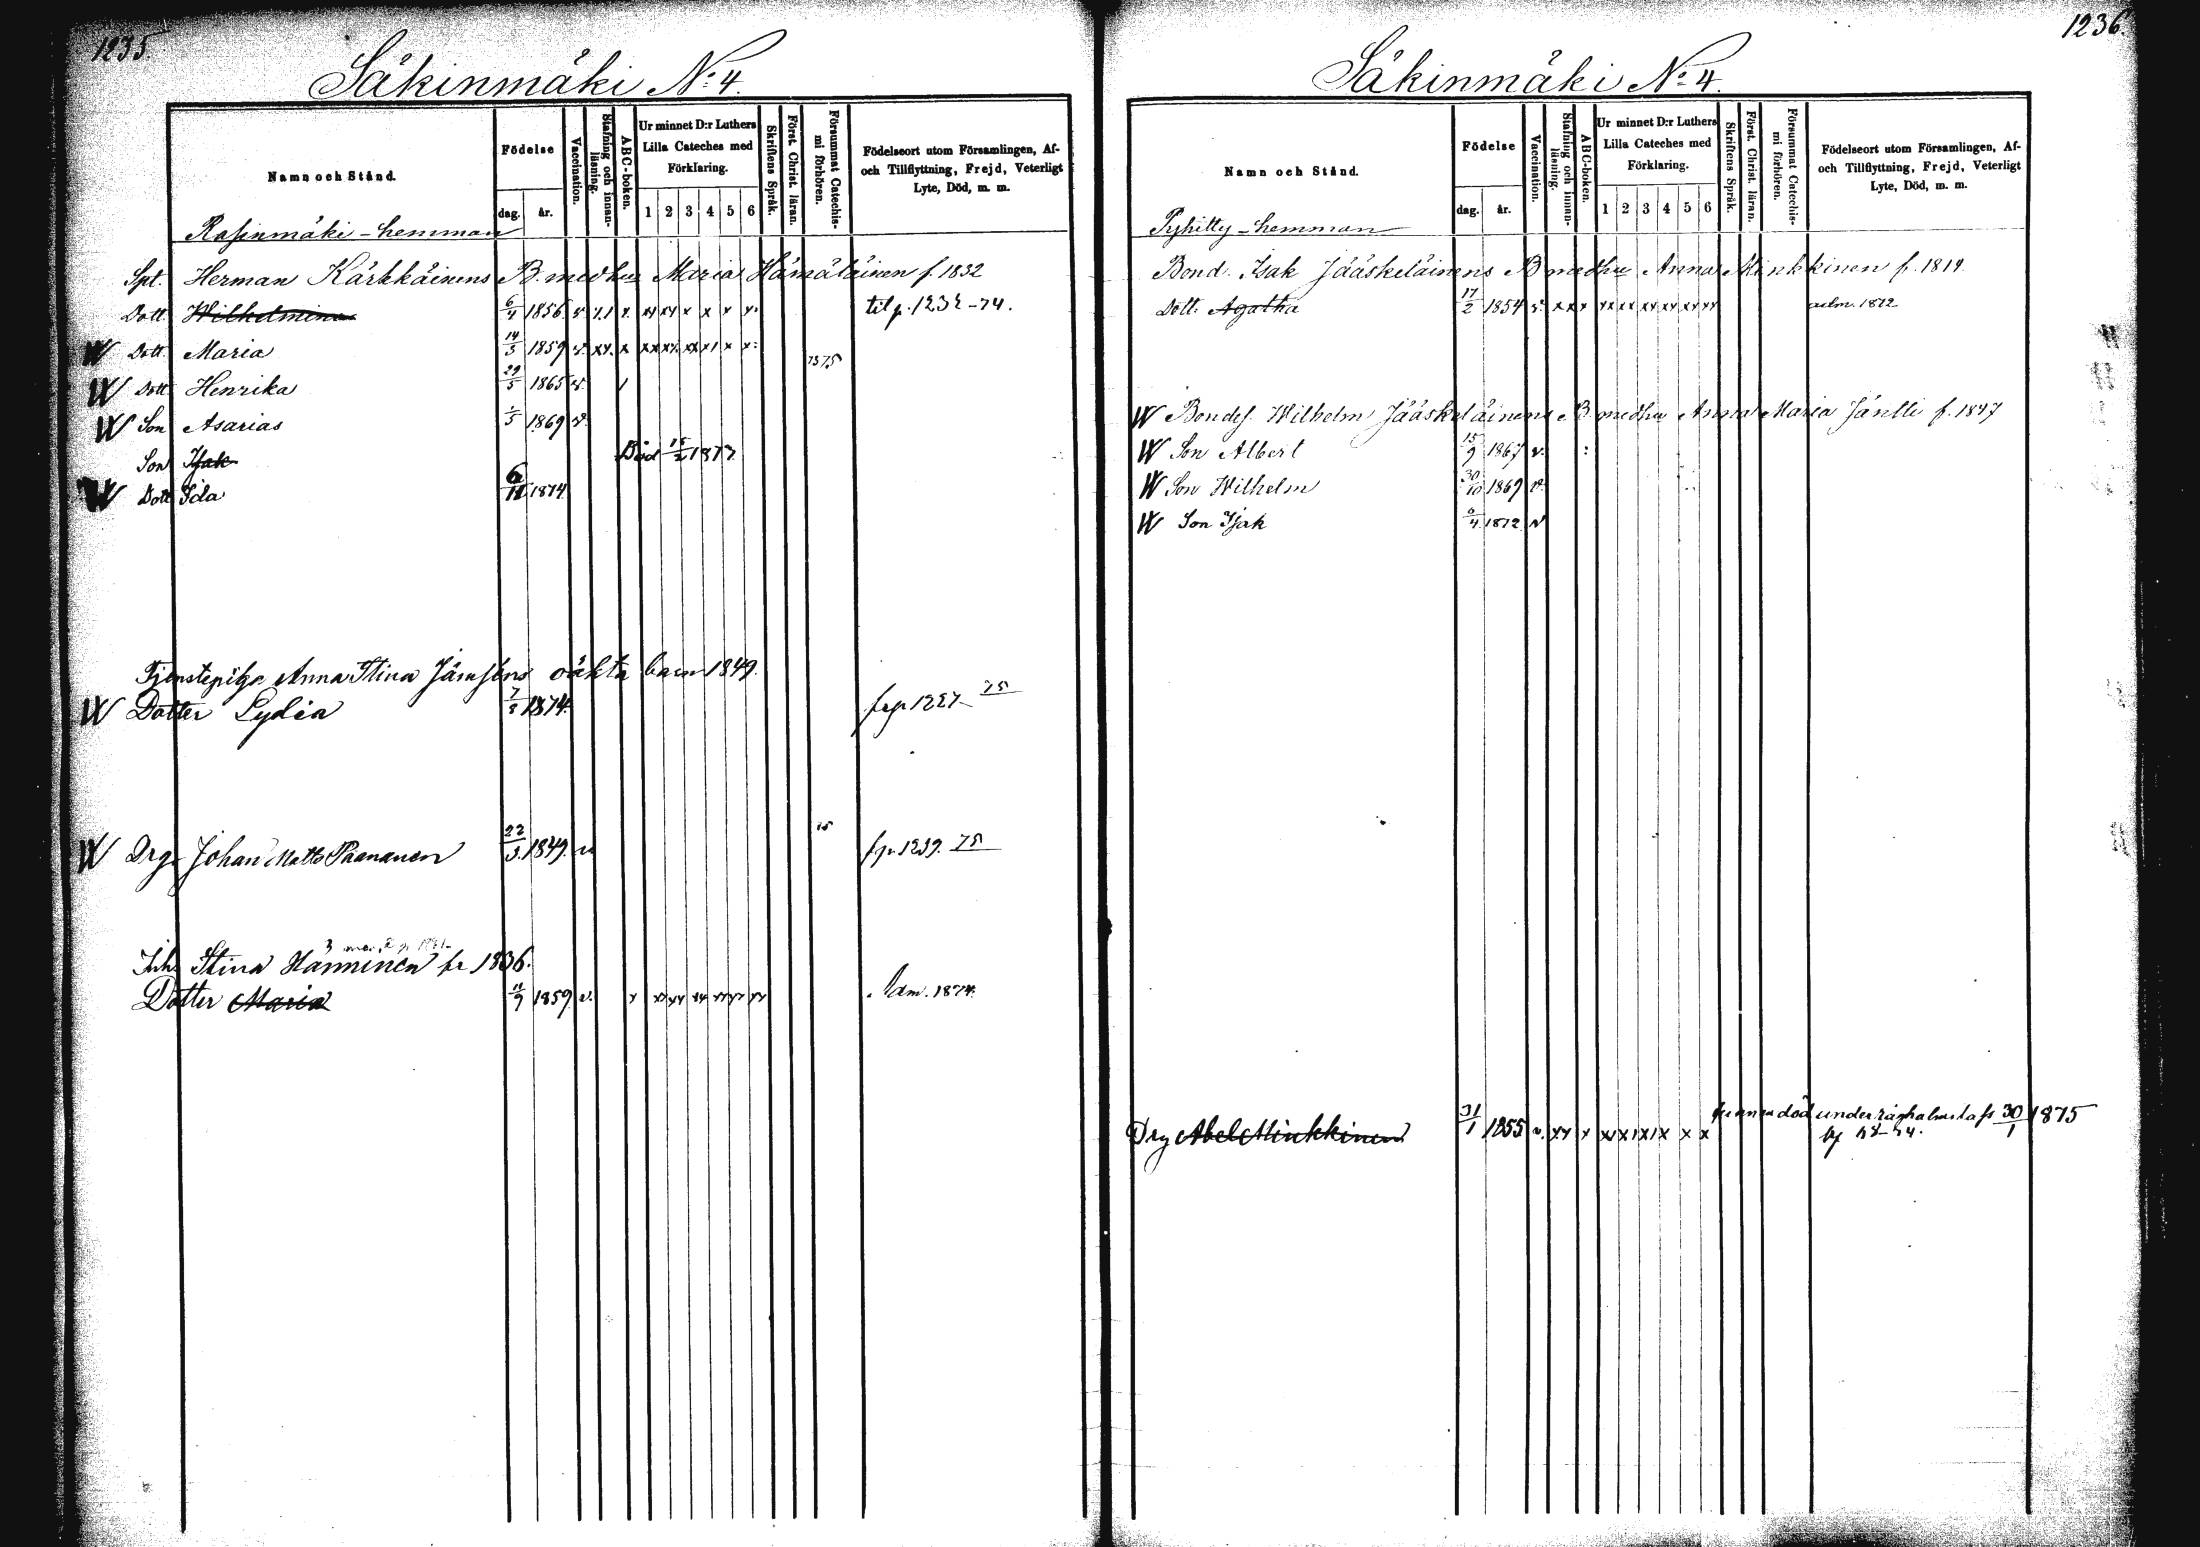 1235.
Säkinmäki No 4.
Namn och Stånd.
Födelse
dag.
år.
Vaccination.
Stafning och innanläsning.
ABC-boken.
Ur minnet D:r Luthers Lilla Cateches med Förklaring.
1 2 3 4 5 6
Skriftens Språk.
Först. Christ. läran.
Försummat Catechismi förhören.
Födelseort utom Församlingen, Af- och Tillflyttning, Frejd, Veterligt Lyte, Död, m. m.
Rasinmäki - hemman
Spt. Herman Kärkkäinens B. med hu Maria Hämäläinen f. 1832
Dott Wilhelmina 6/4 1856. v. x1 x. xx xx x x x x. til p. 1232-74.
W Dott Maria 14/3 1859 v. xx. x xx xx xx x1 x x: 1375
W Dott Henrika 29/5 1865 v. /
W Son Asarias 1/5 1869 v.
Son Isak Död 15/2 1873
W Dott Ida 6/11 1874
Tjenstepiga Anna Stina Jämsens oäkta barn 1849.
W Dotter Lydia 7/8 1874. frp 1227 75
W Drg. Johan Matts Paananen 22/3. 1849. v 75 frp 1239. 75
Inh. Stina Hänninen fr 1836.
Dotter Maria 11/9 1859 v. x xx xx xx xx xx xx Adm. 1874.
1236.
Säkinmäki No 4.
Namn och Stånd.
Födelse
dag.
år.
Vaccination.
Stafning och innanläsning.
ABC-boken.
Ur minnet D:r Luthers Lilla Cateches med Förklaring.
1 2 3 4 5 6
Skriftens Språk.
Först. Christ. läran.
Försummat Catechismi förhören.
Födelseort utom Församlingen, Af- och Tillflyttning, Frejd, Veterligt Lyte, Död, m. m.
Pyhitty - hemman
Bond. Isak Jääskeläinens B med hu Anna Minkkinen f. 1819
Dott. Agatha 17/2 1854 v. xx x xx xx xx xx xx xx adm. 1872
W Bondes. Wilhelm Jääskeläinens B med hu Anna Maria Jäntti f. 1847
W Son Albert 15/9 1867 v. :
W Son Wilhelm 30/10 1869 v.
W Son Isak 6/4 1872 v
Drg Abel Minkkinen 31/1 1855 v. xx x xx x1 x1 x x x funnen död under 30/1 1875